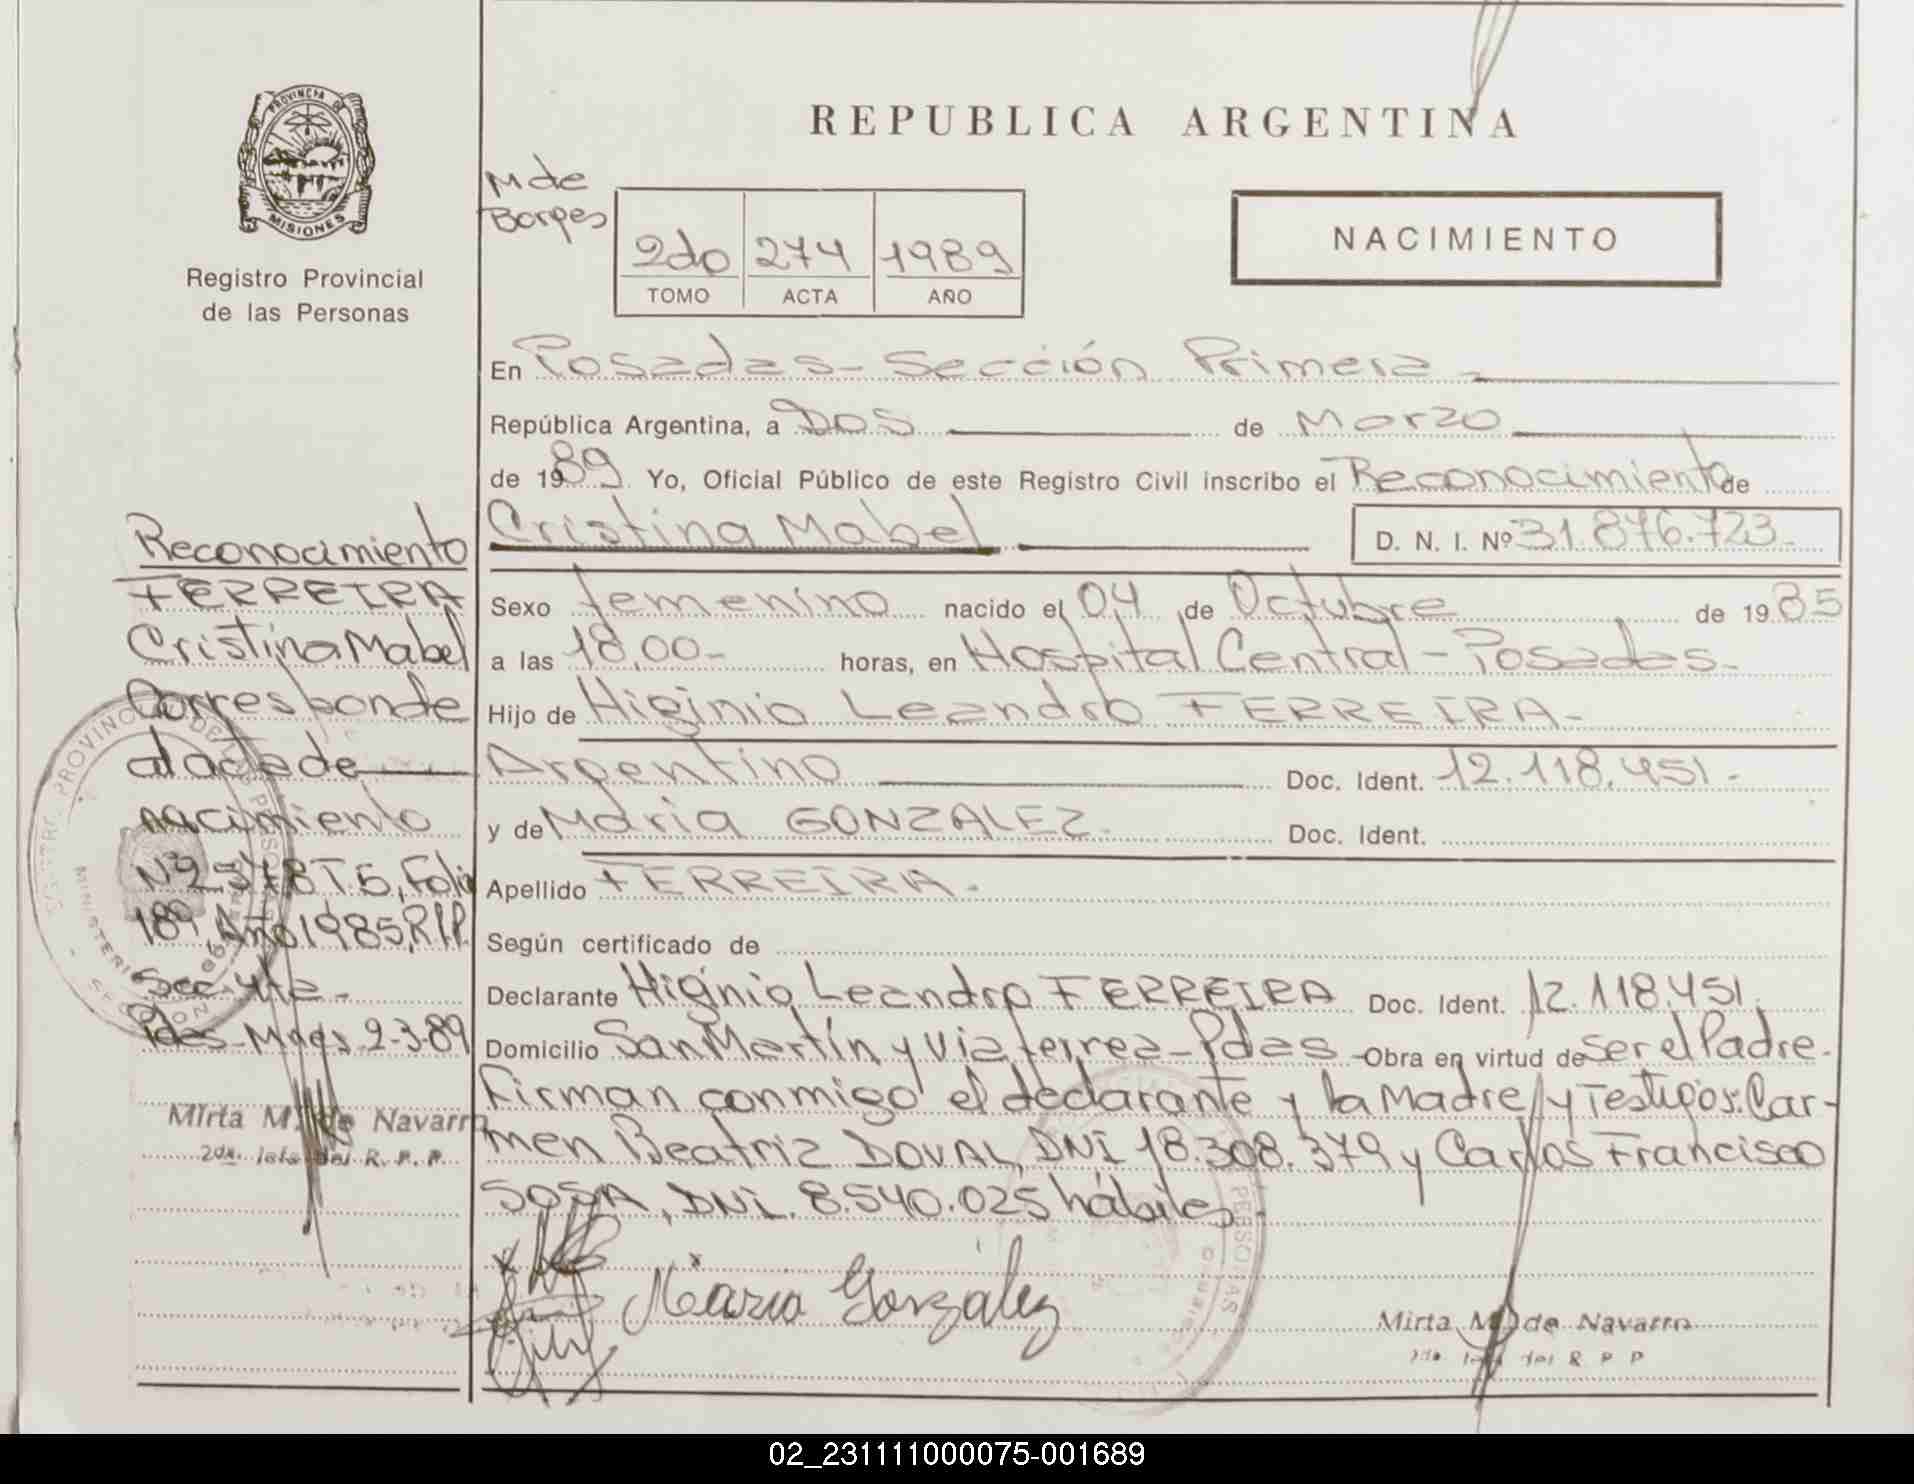 PROVINCIA DE
MISIONES
Registro Provincial
de las Personas
REPUBLICA ARGENTINA
M de
Borges
2do 274 1989
TOMO ACTA AÑO
NACIMIENTO
En Posadas - Sección Primera -
República Argentina, a Dos de Marzo
de 1989 Yo, Oficial Público de este Registro Civil inscribo el Reconocimiento de
Cristina Mabel D. N. I. Nº 31.876.723-
Sexo femenino nacido el 04 de Octubre de 1985
a las 18,00- horas, en Hospital Central - Posadas-
Hijo de Higinio Leandro FERREIRA-
Argentino Doc. Ident. 12.118.451-
y de Maria GONZALEZ. Doc. Ident.
Apellido FERREIRA.
Según certificado de
Declarante Higinio Leandro FERREIRA Doc. Ident. 12.118.451.
Domicilio San Martín y Via ferrea - Pdas - Obra en virtud de ser el Padre.
Firman conmigo el declarante y la Madre y Testigos: Car-
men Beatriz DOVAL, DNI 18.308.379 y Carlos Francisco
SOSA, DNI. 8.540.025 hábiles.
Maria González
Mirta M. de Navarro
2da. Jefa del R. P. P
Reconocimiento
FERREIRA
Cristina Mabel
Corresponde
al acta de
nacimiento
Nº 2378 T. 5, Folio
189, Año 1985, R.P.P.
Sec. 4ta -
Pdas - Mnes 2-3-89
Mirta M. de Navarro
2da. Jefa del R. P. P.
02_231111000075-001689